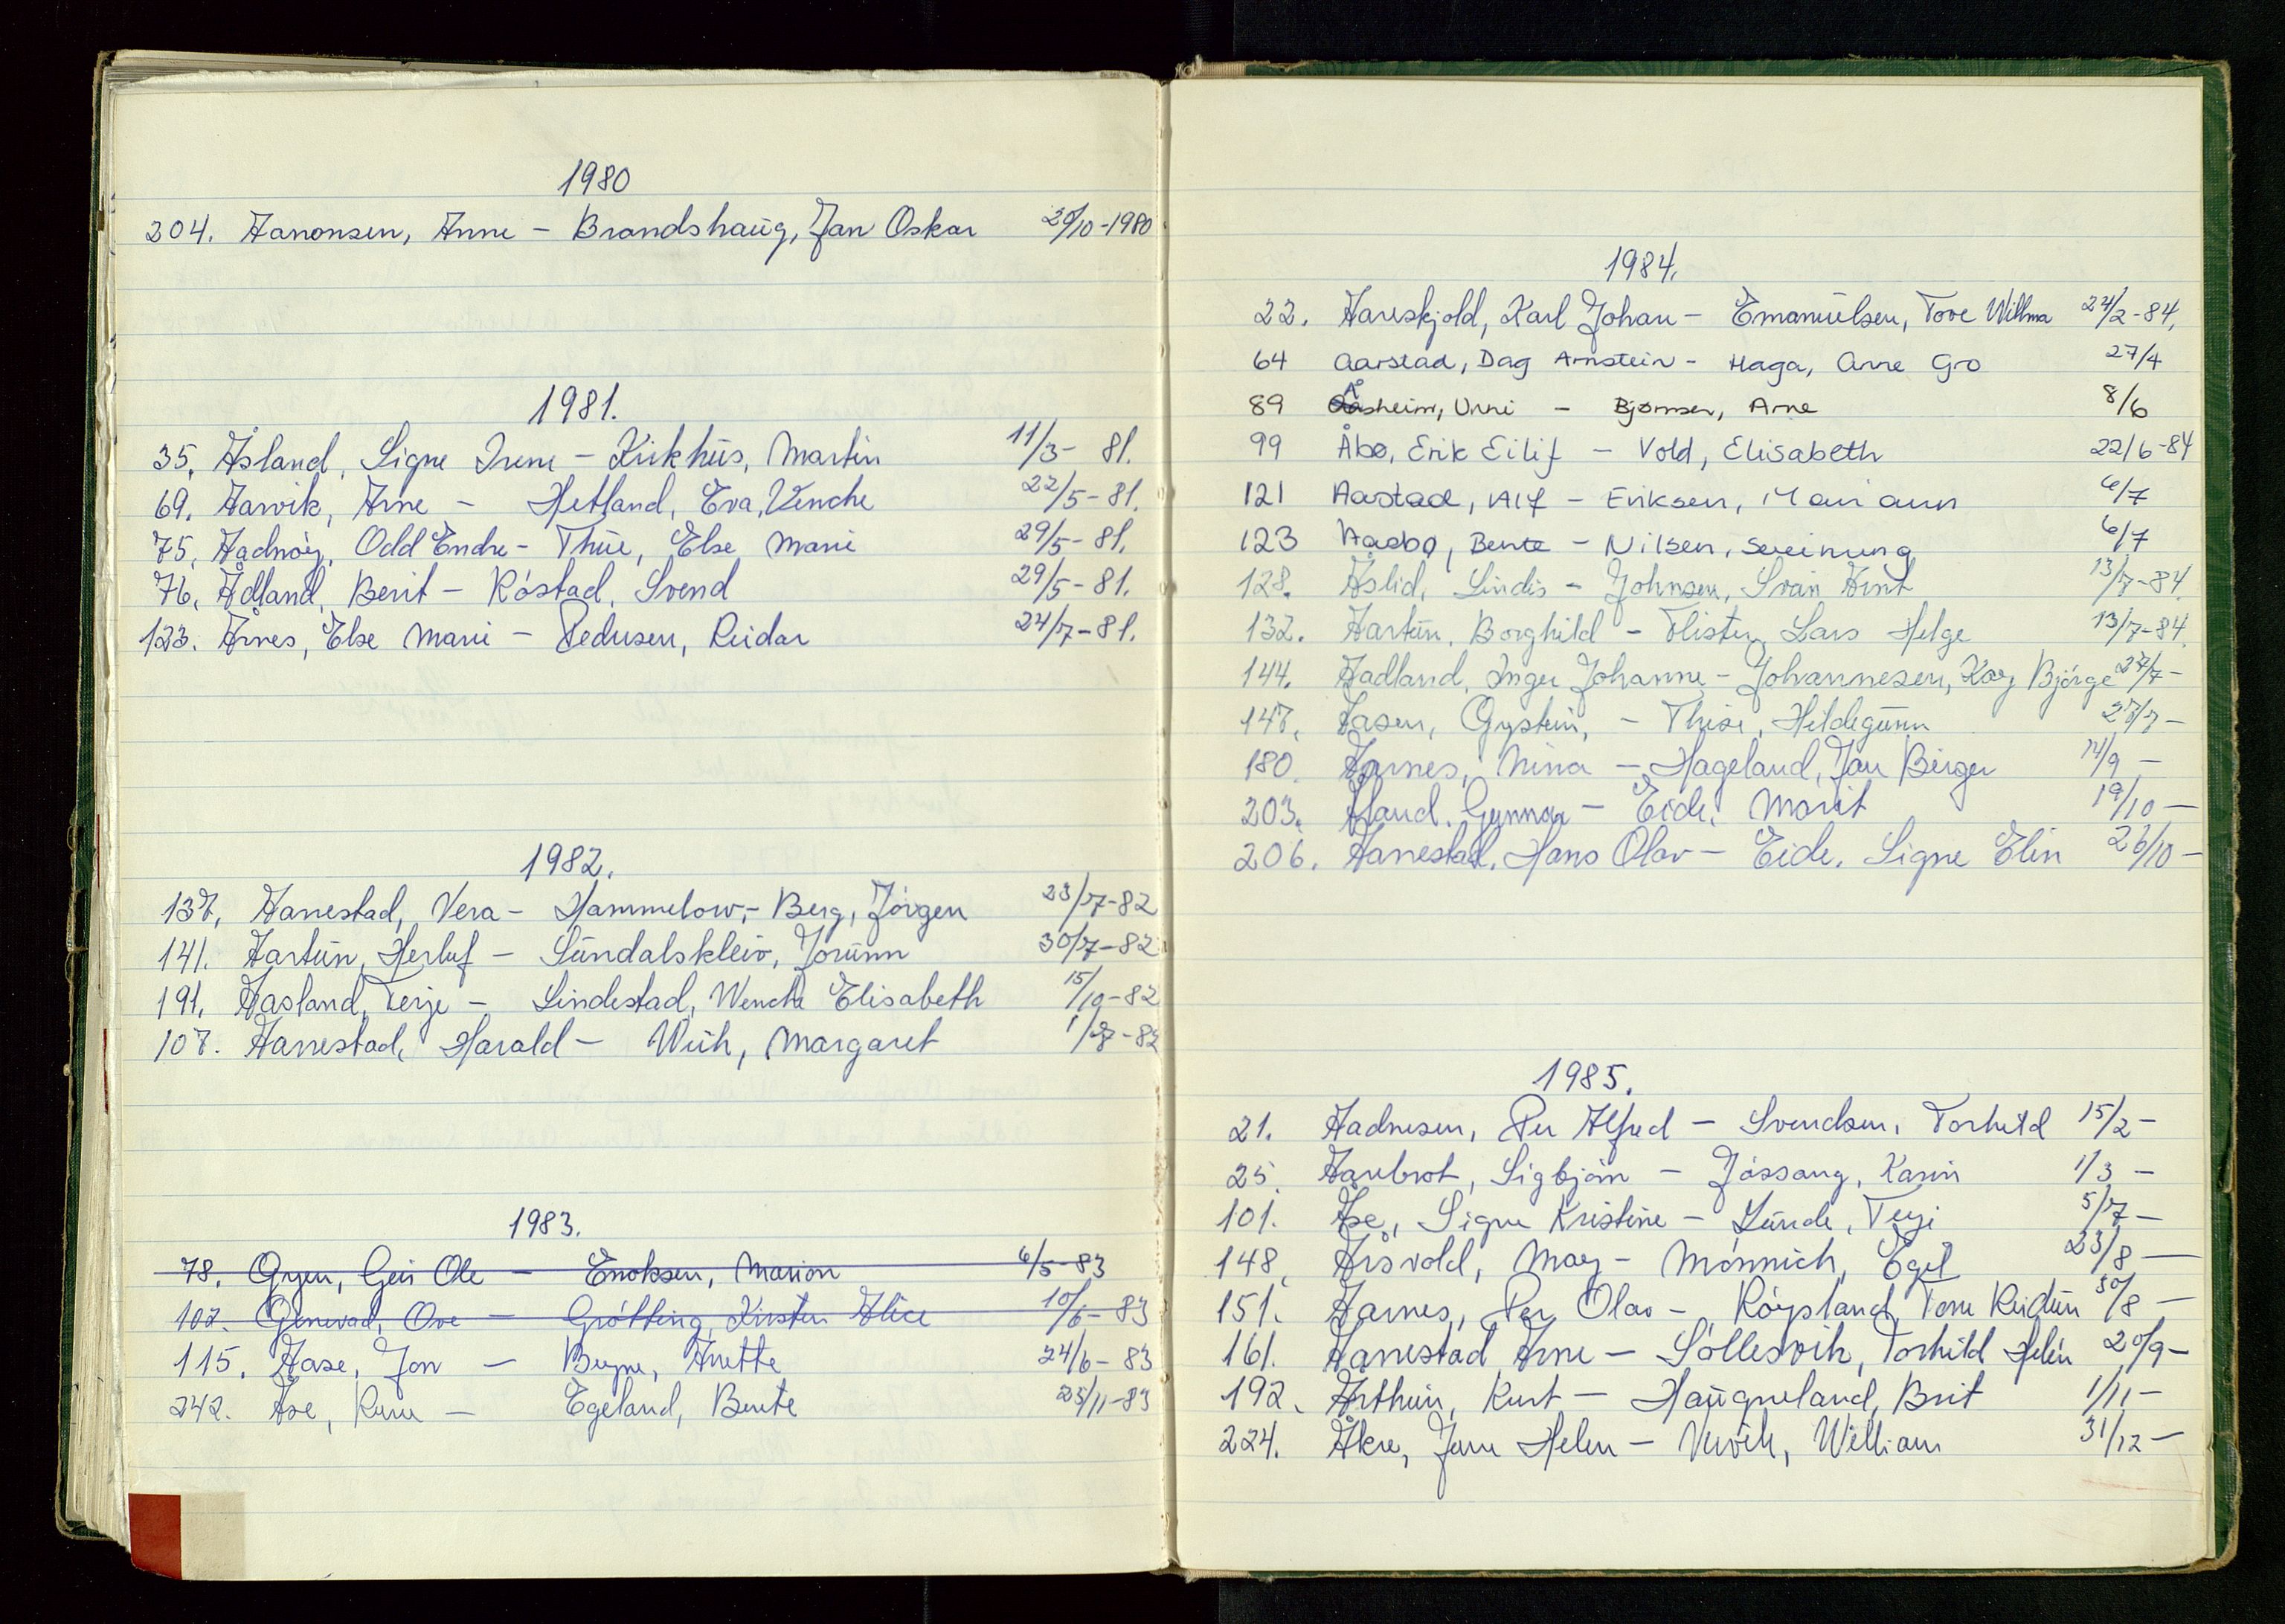 1980
204. Aanonsen, Anne - Brandshaug, Jan Oskar 20/10-1980
1981.
35. Åsland, Signe Irene - Kirkhus, Martin 11/3- 81.
69. Aarvik, Arne - Hetland, Eva, Wenche 22/5-81.
75. Aadnøy, Odd Endre - Thue, Else Marie 29/5-81.
76. Ådland, Berit - Råstad, Svend 29/5-81.
123. Årnes, Else Marie - Pedersen, Reidar 24/7-81.
1982.
137. Aanestad, Vera - Hammelow,- Berg, Jörgen 23/7-82
141. Aartun, Herluf - Sundalskleiv, Jorunn 30/7-82
191. Aasland, Terje - Lindestad, Wenche Elisabeth 15/10-82
107. Aanestad, Harald - Wiih, Margaret 1/7-82
1983.
78. Geir Ole - Enoksen, Marion 6/5-83
102. Ove - Grötting, Kirsten Alice 10/6-83
115. Aase, Jon - Anette 24/6-83
242. Åse, Rune - Egeland, Bente 25/11-83
1984.
22. Aareskjold, Karl Johan - Emanuelsen, Tove Willma 24/2-84.
64 Aarstad, Dag Arnstein - Haga, Anne Gro 27/4
89 Åsheim, Unni - Bjørnsen, Arne 8/6
99 Åbø, Erik Eilif - Vold, Elisabeth 22/6-84
121 Aastad, Alf - Eriksen, Mariann 6/7
123 Aasbø, Bente - Nilsen, Sveinung 6/7
128. Åslid, Lindis - Johnsen, Svän Arnt 13/7-84
132. Aartun, Borghild - Lars Helge 13/7-84.
144. Aadland, Inger Johanne - Johannesen, Kay Björge 27/7-
147. Aasen, Öystein, - Hildegunn 27/7-
180. Aarnes, Nina - Hageland, Jan Birger 14/9 -
203. Åland. Gunnar - Eide, Marit 19/10 -
206. Aanestad. Hans Olav - Eide. Signe Elin 26/10 -
1985.
21. Aadnesen, Per Alfred - Svendsen, Torhild 15/2-
25. Aarebrot, Sigbjörn - Jössang, Karin 1/3 -
101. Åse, Signe Kristine - Lunde, Terje 5/7-
148. Årsvold, May - Mönnich, Egil 23/8-
151. Aarnes, Per Olav - Röysland, Tone Reidun 30/8 -
161. Aanestad Arne - Söllesvik, Torhild Helén 20/9-
192. Årthun, Kurt - Haugneland, Brit 1/11-
224. Åkre, Jane Helen - William 31/12-